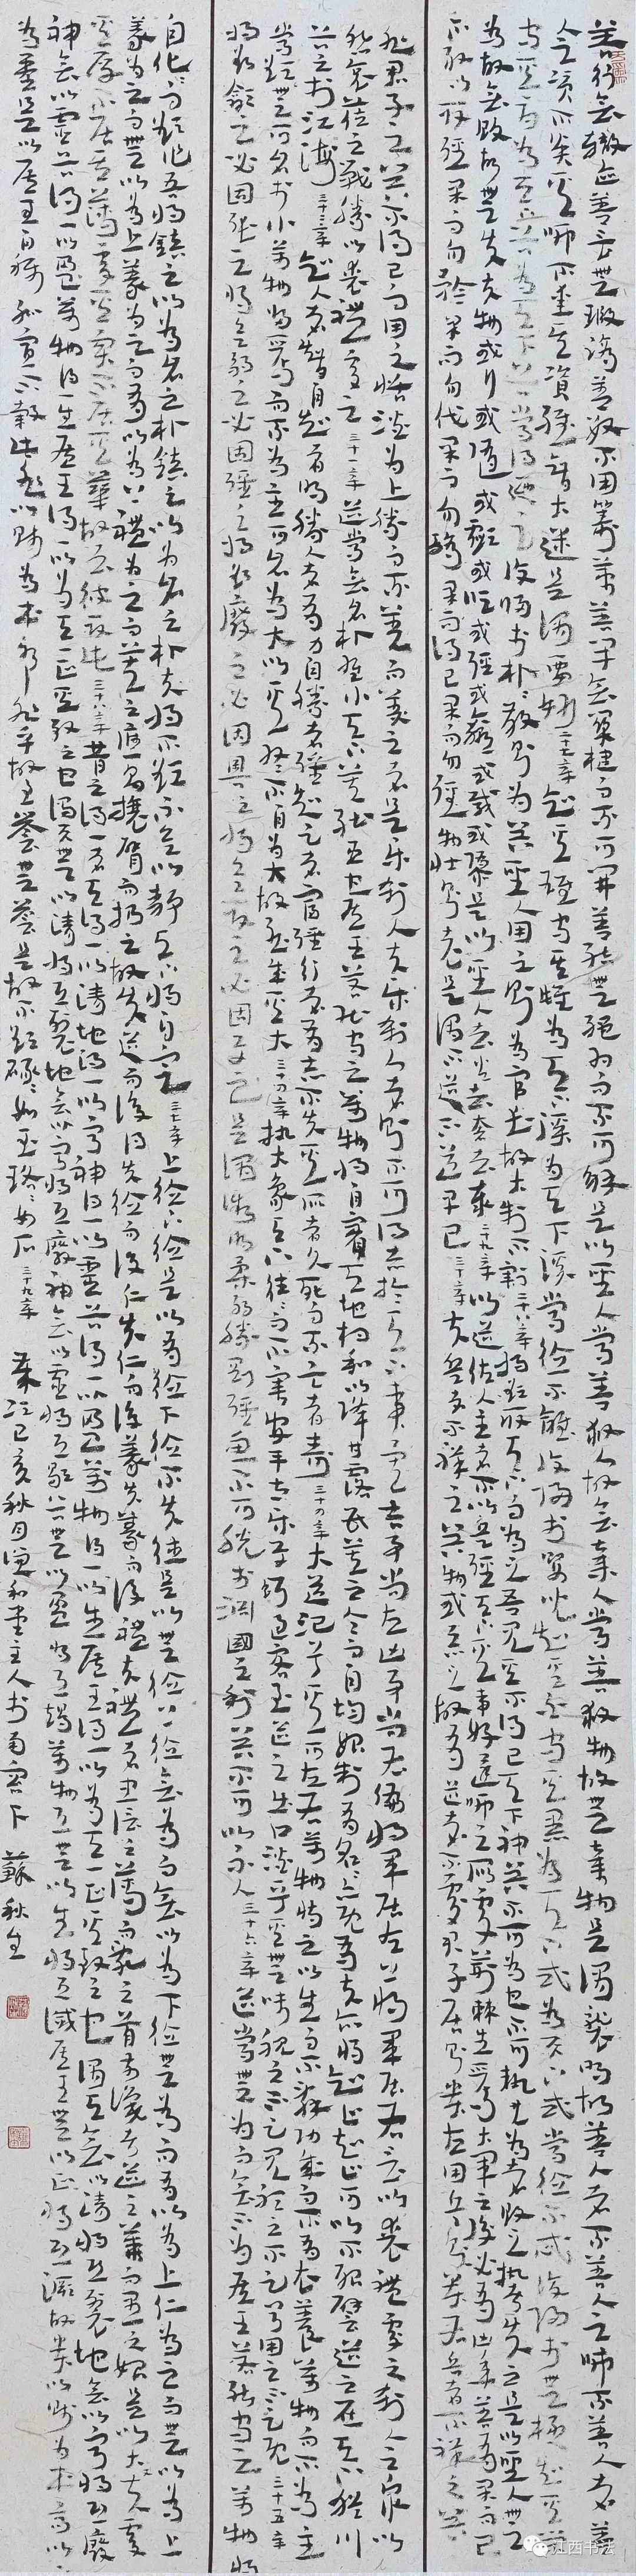 善行無轍迹善言無瑕謫善數不用籌策善閉無關楗而不可開善結無繩約而不可解是以聖人常善救人故無棄人常善救物故無棄物是謂襲明故善人者不善人之師不善人者善
人之資不貴其師不愛其資雖智大迷是謂要妙二十七章知其雄守其雌為天下谿為天下谿常德不離復歸於嬰兒知其白守其黑為天下式為天下式常德不忒復歸於無極知其榮
守其辱為天下谷為天下谷常德乃足復歸於朴朴散則為器聖人用之則為官長故大制不割二十八章將欲取天下而為之吾見其不得已天下神器不可為也不可執也為者敗之執者失之是以聖人無
為故無敗故無失夫物或行或隨或歔或吹或強或羸或載或隳是以聖人去甚去奢去泰二十九章以道佐人主者不以兵強天下其事好還師之所處荊棘生焉大軍之後必有凶年善有果而已
不敢以取強果而勿矜果而勿伐果而勿驕果而不得已果而勿強物壯則老是謂不道不道早已三十章夫兵者不祥之器物或惡之故有道者不處君子居則貴左用兵則貴右兵者不祥之器
非君子之器不得已而用之恬淡為上勝而不美而美之者是樂殺人夫樂殺人者則不可得志於天下矣吉事尚左凶事尚右偏將軍居左上將軍居右言以喪禮處之殺人之眾以
悲哀莅之戰勝以喪禮處之三十一章道常無名朴雖小天下莫能臣也侯王若能守之萬物將自賓天地相和以降甘露民莫之令而自均始制有名名亦既有夫亦將知止知止可以不殆譬道之在天下猶川
谷之於江海三十二章知人者智自知者明勝人者有力自勝者強知足者富強行者有志不失其所者久死而不亡者壽三十三章大道氾兮其可左右萬物恃之以生而不辭功成而不有衣養萬物而不為主
常無欲可名於小萬物歸焉而不為主可名為大以其終不自為大故能成其大三十四章執大象天下往往而不害安平太樂與餌過客止道之出口淡乎其無味視之不足見聽之不足聞用之不足既三十五章
將欲歙之必固張之將欲弱之必固強之將欲廢之必固興之將欲取之必固與之是謂微明柔弱勝剛強魚不可脫於淵國之利器不可以示人三十六章道常無為而無不為侯王若能守之萬物將
自化化而欲作吾將鎮之以無名之朴鎮之以無名之朴夫將不欲不欲以靜天下將自定三十七章上德不德是以有德下德不失德是以無德上德無為而無以為下德無為而有以為上仁為之而無以為上
義為之而有以為上禮為之而莫之應則攘臂而扔之故失道而後德失德而後仁失仁而後義失義而後禮夫禮者忠信之薄而亂之首前識者道之華而愚之始是以大丈夫處
其厚不居其薄處其實不居其華故去彼取此三十八章昔之得一者天得一以清地得一以寧神得一以靈谷得一以盈萬物得一以生侯王得一以為天下正其致之也謂天無以清將恐裂地無以寧將恐廢
神無以靈谷得一以盈萬物得一生侯王得一以為天下正其致之也謂天無以清將恐裂地無以寧將恐廢神無以靈將恐歇谷無以盈將恐竭萬物無以生將恐滅侯王無以正將恐蹶故貴以賤為本高以下
為基是以侯王自稱孤寡不穀此非以賤為本邪非乎故至譽無譽是故不欲琭琭如玉珞珞如石三十九章 歲次己亥秋月主人於南窗下 蘇秋生
江西书法